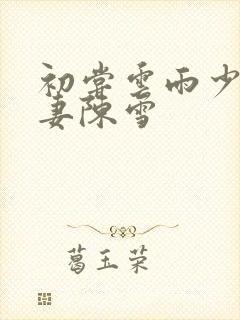 初尝云雨少
妻陈雪
葛玉荣